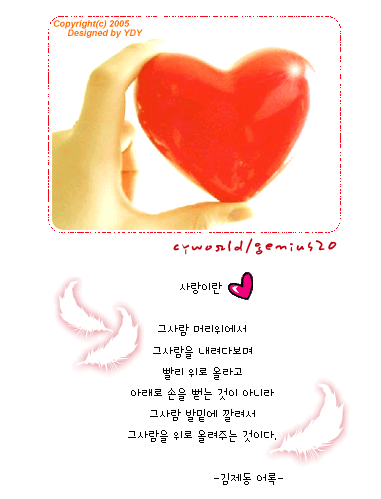 Copyright(c) 2005
Designed by YDY
cyworld/genius20
사랑이란
그사람 머리위에서
그사람을 내려다보며
빨리 위로 올라고
아래로 손을 뻗는 것이 아니라
그사람 발밑에 깔려서
그사람을 위로 올려주는 것이다.
-김제동 어록-